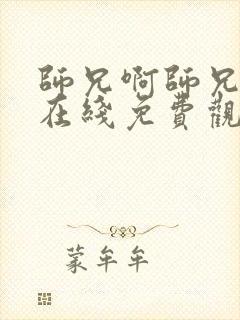 師兄啊師兄
在綫免費觀
蒙牟牟